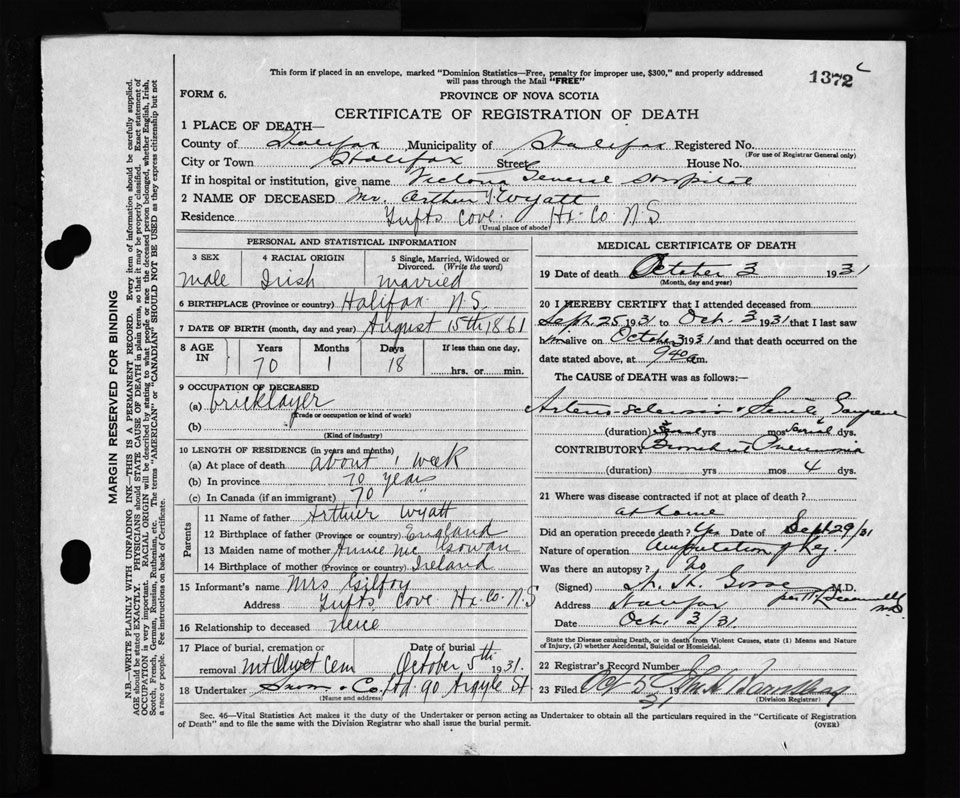 This form if placed in an envelope, marked "Dominion Statistics—Free, penalty for improper use, $300," and properly addressed
will pass through the Mail "FREE"
1372
FORM 6.
PROVINCE OF NOVA SCOTIA
CERTIFICATE OF REGISTRATION OF DEATH
1 PLACE OF DEATH—
County of Halifax Municipality of Halifax Registered No.
(For use of Registrar General only)
City or Town Halifax Street House No.
If in hospital or institution, give name Victoria General Hospital
2 NAME OF DECEASED Mr. Arthur Wyatt
Residence Tufts Cove Hx. Co. N.S.
(Usual place of abode)
PERSONAL AND STATISTICAL INFORMATION
3 SEX 4 RACIAL ORIGIN 5 Single, Married, Widowed or
Divorced. (Write the word)
male Irish married
6 BIRTHPLACE (Province or country) Halifax N.S.
7 DATE OF BIRTH (month, day and year) August 15th 1861
8 AGE IN Years Months Days If less than one day,
70 1 18 hrs. or min.
9 OCCUPATION OF DECEASED
(a) bricklayer
(Trade or occupation or kind of work)
(b)
(Kind of industry)
10 LENGTH OF RESIDENCE (in years and months)
(a) At place of death about 1 week
(b) In province 70 years
(c) In Canada (if an immigrant) 70 "
Parents
11 Name of father Arthur Wyatt
12 Birthplace of father (Province or country) England
13 Maiden name of mother Annie Mc Gowan
14 Birthplace of mother (Province or country) Ireland
15 Informant's name Mrs Gilfoy
Address Tufts Cove Hx. Co. N.S
16 Relationship to deceased Niece
17 Place of burial, cremation or Date of burial
removal Mt Olivet Cem October 5th 1931.
18 Undertaker Snow & Co. Ltd 90 Argyle St
(Name and address)
MEDICAL CERTIFICATE OF DEATH
19 Date of death October 3 1931
(Month, day and year)
20 I HEREBY CERTIFY that I attended deceased from
Sept. 25 1931 to Oct. 3 1931 that I last saw
him alive on October 3 1931 and that death occurred on the
date stated above, at 9 40 a.m.
The CAUSE of DEATH was as follows:—
Arterio-sclerosis & Senile Gangrene
(duration) yrs mos dys.
CONTRIBUTORY Broncho Pneumonia
(duration) yrs mos 4 dys.
21 Where was disease contracted if not at place of death?
at home
Did an operation precede death? Yes Date of Sept 29/31
Nature of operation Amputation of Leg.
Was there an autopsy? No
(Signed) M.D.
Address Halifax
Date Oct. 3/31
State the Disease causing Death, or in death from Violent Causes, state (1) Means and Nature
of Injury, (2) whether Accidental, Suicidal or Homicidal.
22 Registrar's Record Number
23 Filed Oct 5 19 31
(Division Registrar)
Sec. 46—Vital Statistics Act makes it the duty of the Undertaker or person acting as Undertaker to obtain all the particulars required in the "Certificate of Registration
of Death" and to file the same with the Division Registrar who shall issue the burial permit. (OVER)
MARGIN RESERVED FOR BINDING
N.B.—WRITE PLAINLY WITH UNFADING INK—THIS IS A PERMANENT RECORD. Every item of information should be carefully supplied.
AGE should be stated EXACTLY. PHYSICIANS should STATE CAUSE OF DEATH in plain terms, so that it may be properly classified. Exact statement of
OCCUPATION is very important. RACIAL ORIGIN will be described by stating to what people or race the deceased person belonged, whether English, Irish,
Scotch, French, German, Russian, Ruthenian, etc. The terms "AMERICAN" or "CANADIAN" SHOULD NOT BE USED as they express citizenship but not
a race or people. See instructions on back of Certificate.